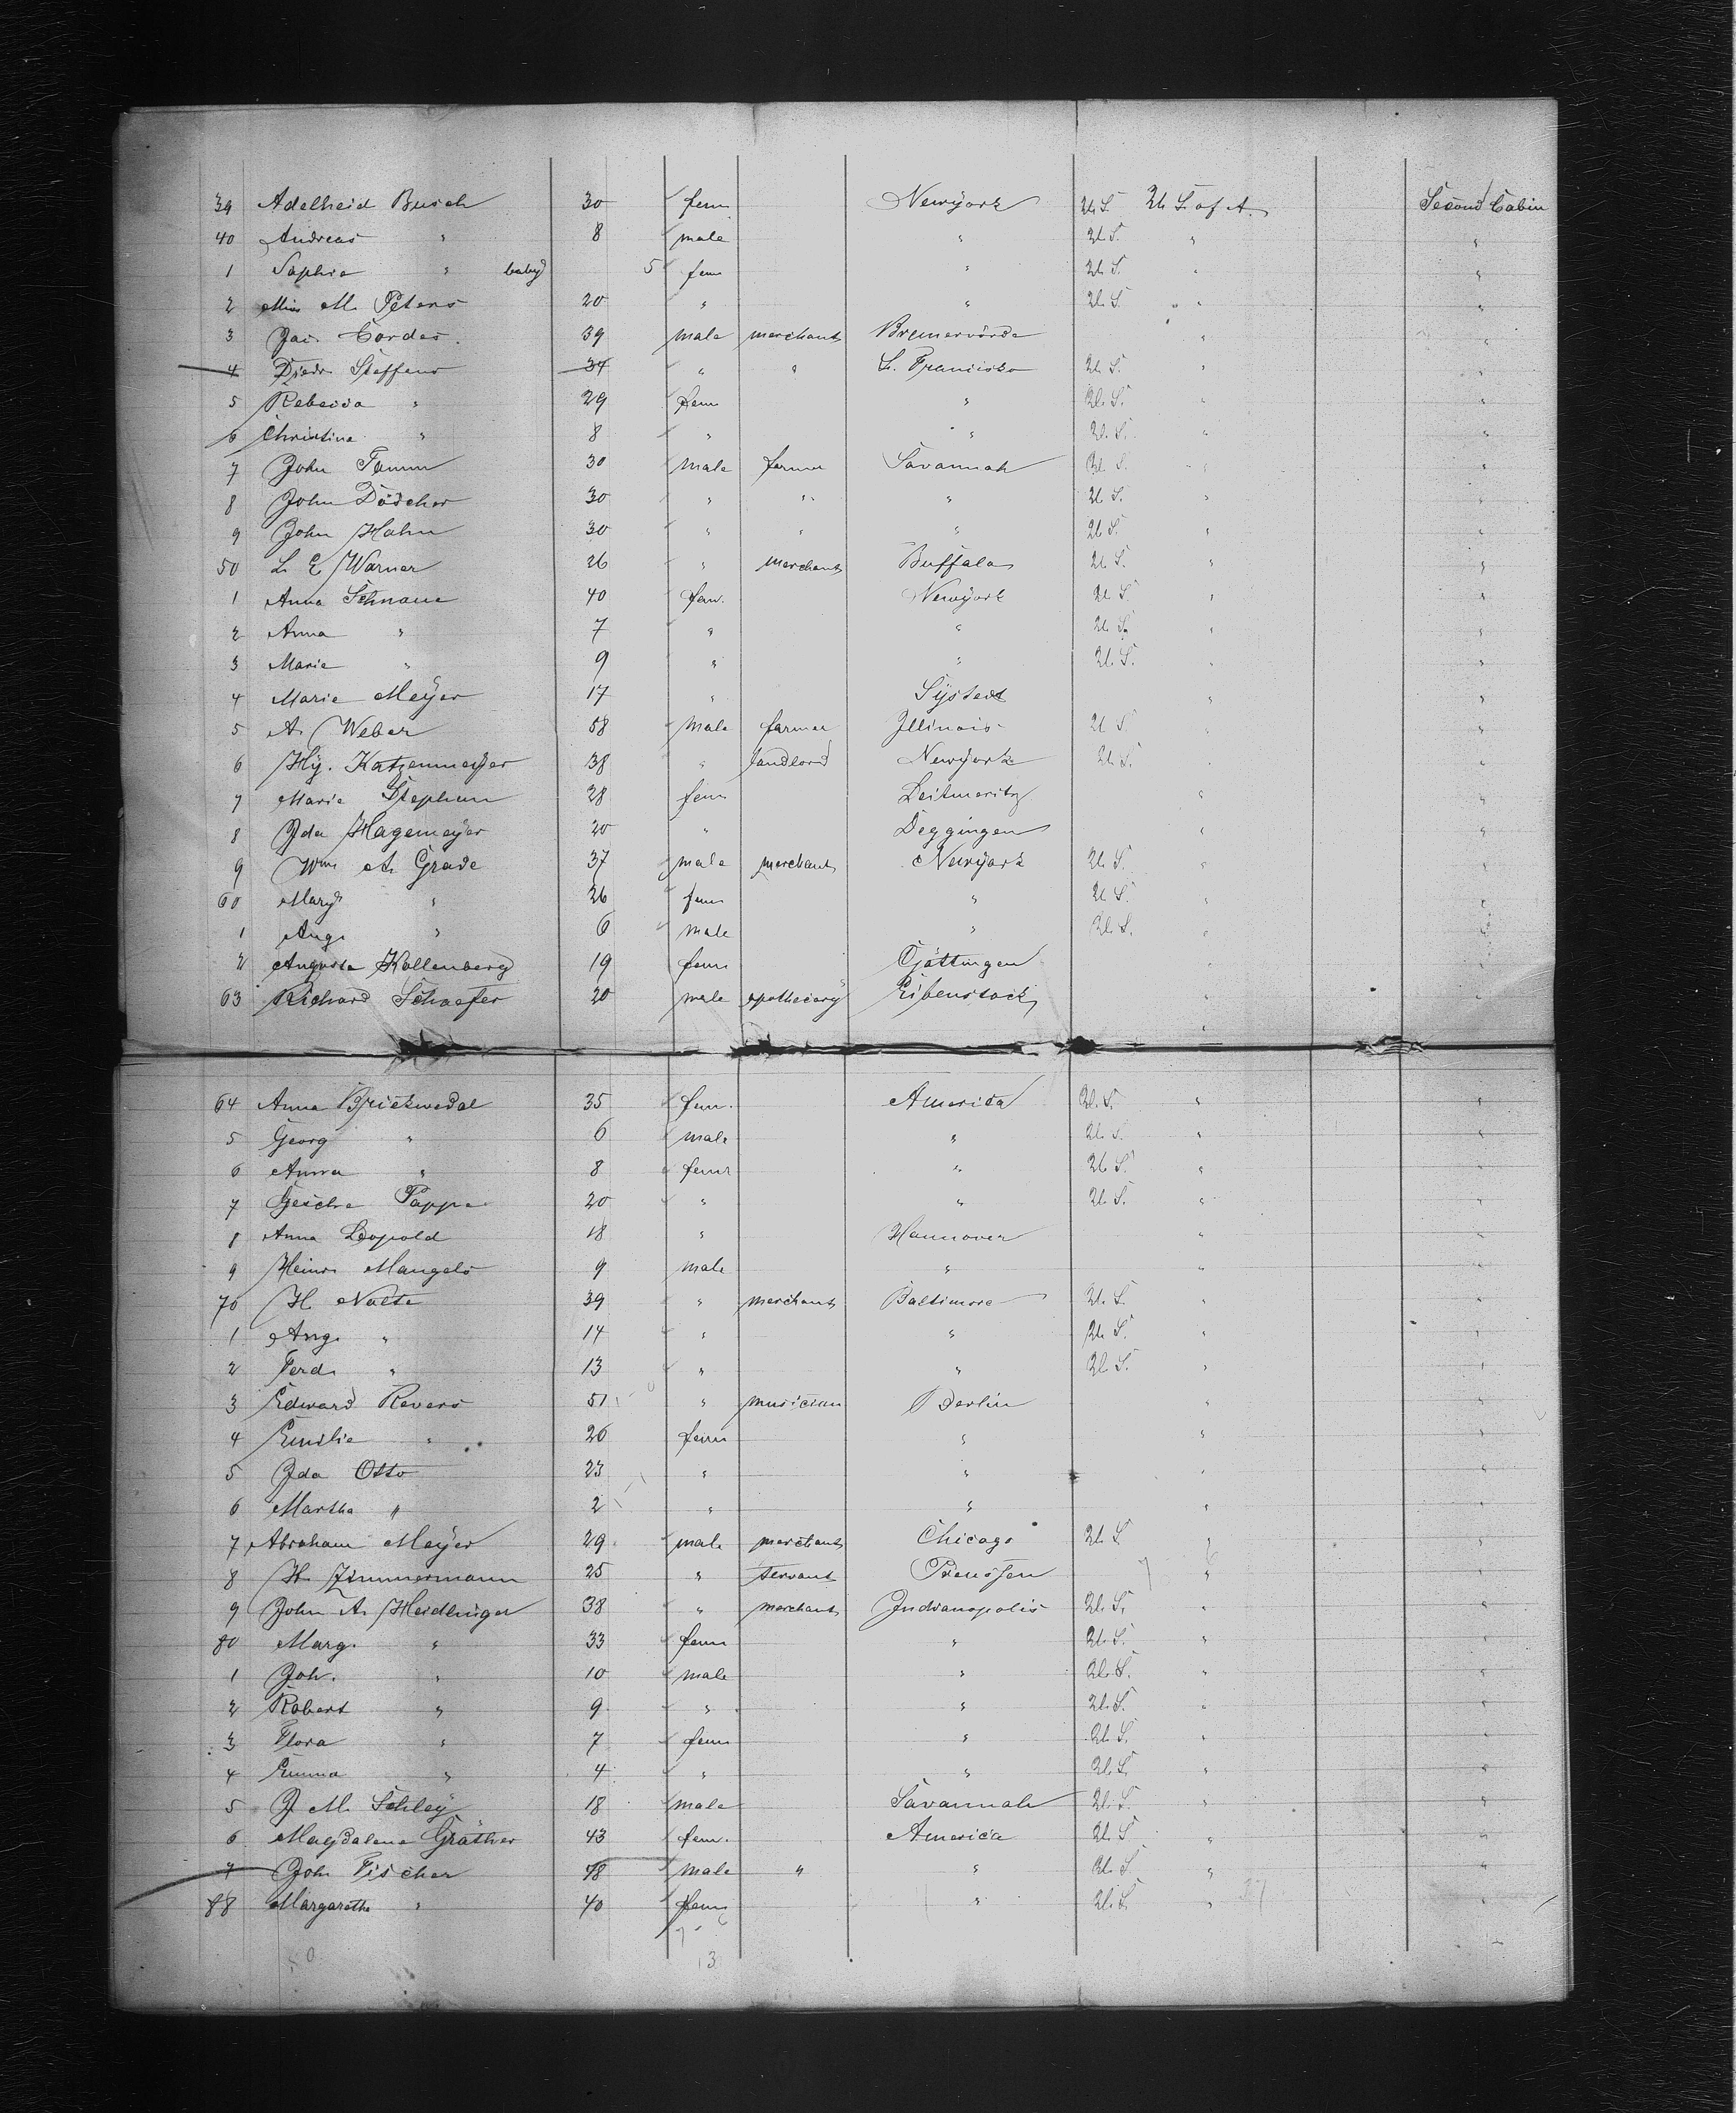 39 Adelheid Busch 30 fem Newyork U. S. U. S. of A. Second Cabin
40 Andreas " 8 male " U. S. " "
1 Sophie " baby 5 fem " U. S. " "
2 Miss M. Peters 20 " " U. S. " "
3 Jac. Cordes. 39 male merchant Bremervörde " "
4 Diedr. Steffens 34 " " S. Francisko U. S. " "
5 Rebecca " 29 fem " U. S. " "
6 Christine " 8 " " U. S. " "
7 John Tamm 30 male farmer Savannah U. S. " "
8 John Dödcher 30 " " " U. S. " "
9 John Hahn 30 " " " U. S. " "
50 L. E. Warner 26 " merchant Buffalo U. S. " "
1 Anna Schnaue 40 fem. Newyork U. S. " "
2 Anna " 7 " " U. S. " "
3 Marie " 9 " " U. S. " "
4 Marie Meyer 17 " " "
5 A. Weber 58 male farmer Illinois U. S. " "
6 Hy. Katzenmeyer 38 " landlord Newyork U. S. " "
7 Marie Stephan 28 fem Leitmeritz " "
8 Ida Hagemeyer 20 " Deggingen " "
9 Wm A. Grade 37 male merchant Newyork U. S. " "
60 Mary " 26 fem " U. S. " "
1 Aug. " 6 male " U. S. " "
2 Augusta Kollenberg 19 fem Göttingen " "
63 Richard Schaefer 20 male apothecary Eibenstock " "
"
64 Anna Brickwedel 35 fem. America U. S. " "
5 Georg " 6 male " U. S. " "
6 Anna " 8 fem " U. S. " "
7 Gesche Pappe 20 " " U. S. " "
8 Anna Leopold 18 " Hannover " "
9 Heinr. Mangels 9 male " " "
70 H. Nolte 39 " merchant Baltimore U. S. " "
1 Aug. " 14 " " U. S. " "
2 Ferd. " 13 " " U. S. " "
3 Edward Revers 51 " musician Berlin " "
4 Emilie " 26 fem " " "
5 Ida Otto 23 " " " "
6 Martha " 2 " " " "
7 Abraham Meyer 29 male merchant Chicago U. S. " "
8 H. Zimmermann 25 " servant Preussen " "
9 John A. Heidlinger 38 " merchant Indianopolis U. S. " "
80 Marg. " 33 fem " U. S. " "
1 Joh. " 10 male " U. S. " "
2 Robert " 9 " " U. S. " "
3 Flora " 7 fem " U. S. " "
4 Emma " 4 " " U. S. " "
5 J. M. Schley 18 male Savannah U. S. " "
6 Magdalena Gräther 43 fem. America U. S. " "
7 Joh. Fischer 48 male " " U. S. " "
88 Margarethe " 40 fem " U. S. " "
13